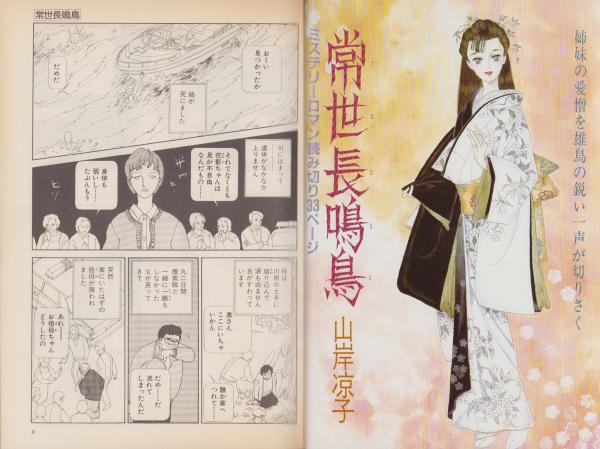 姉妹の愛憎を雄鳥の鋭い一声が切りさく
常世長鳴鳥
ミステリーロマン読み切り33ページ
山岸凉子
常世長鳴鳥
おーい
見つかったか
だめだ
姉が
死にました
川にはまって
遺体がなかなか
上りません
それでなくとも
花影ちゃんは
足が不自由
なんだもの…
身体も
弱いし……
たぶんもう
ヒソ
母は
川原の土手に
座り込んで
涙も出ません
目がすわって
います
奥さん
ここにいちゃ
いかん
誰か家へ
つれて……
丸二日間
捜索隊と
一緒に一睡も
しなかった
父が戻って
きて
だめ……だ
流れて
しまったんだ
突然
家にいたはずの
祖母が現われ
ました
あれ——
お祖母ちゃん
どうしたの
9